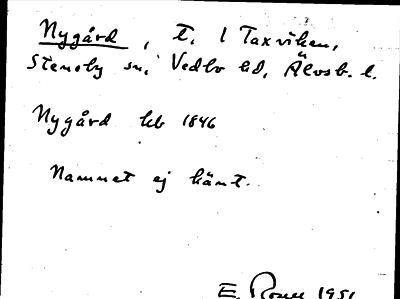 Nygård, t. 1 Taxviken,
Steneby sn, Vedbo hd, Älvsb. l.
Nygård hb 1846
Namnet ej känt.
E. Rosell 1951